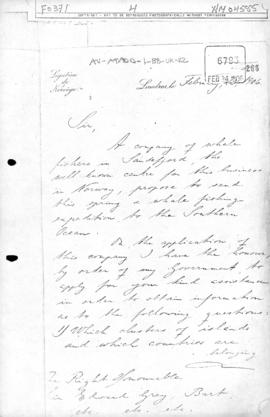 FO 371
4
COPYRIGHT - NOT TO BE REPRODUCED PHOTOGRAPHICALLY WITHOUT PERMISSION
AV-ARADD-1-BB-UK-12
Legation
de
Norvège
6783
FEB 1906
London le February
Sir,
A company of whale
fishers in Sandefjord, the
well known centre for this business
in Norway, propose to send
this spring a whale fishing-
expedition to the Southern
Ocean.
On the application of
this company I have the honour
by order of my Government to
apply for your kind assistance
in order to obtain information
as to the following questions:
1) Which clusters of islands
and which countries are
belonging
The Right Honourable
Sir Edward Grey Bart
etc. etc. etc.